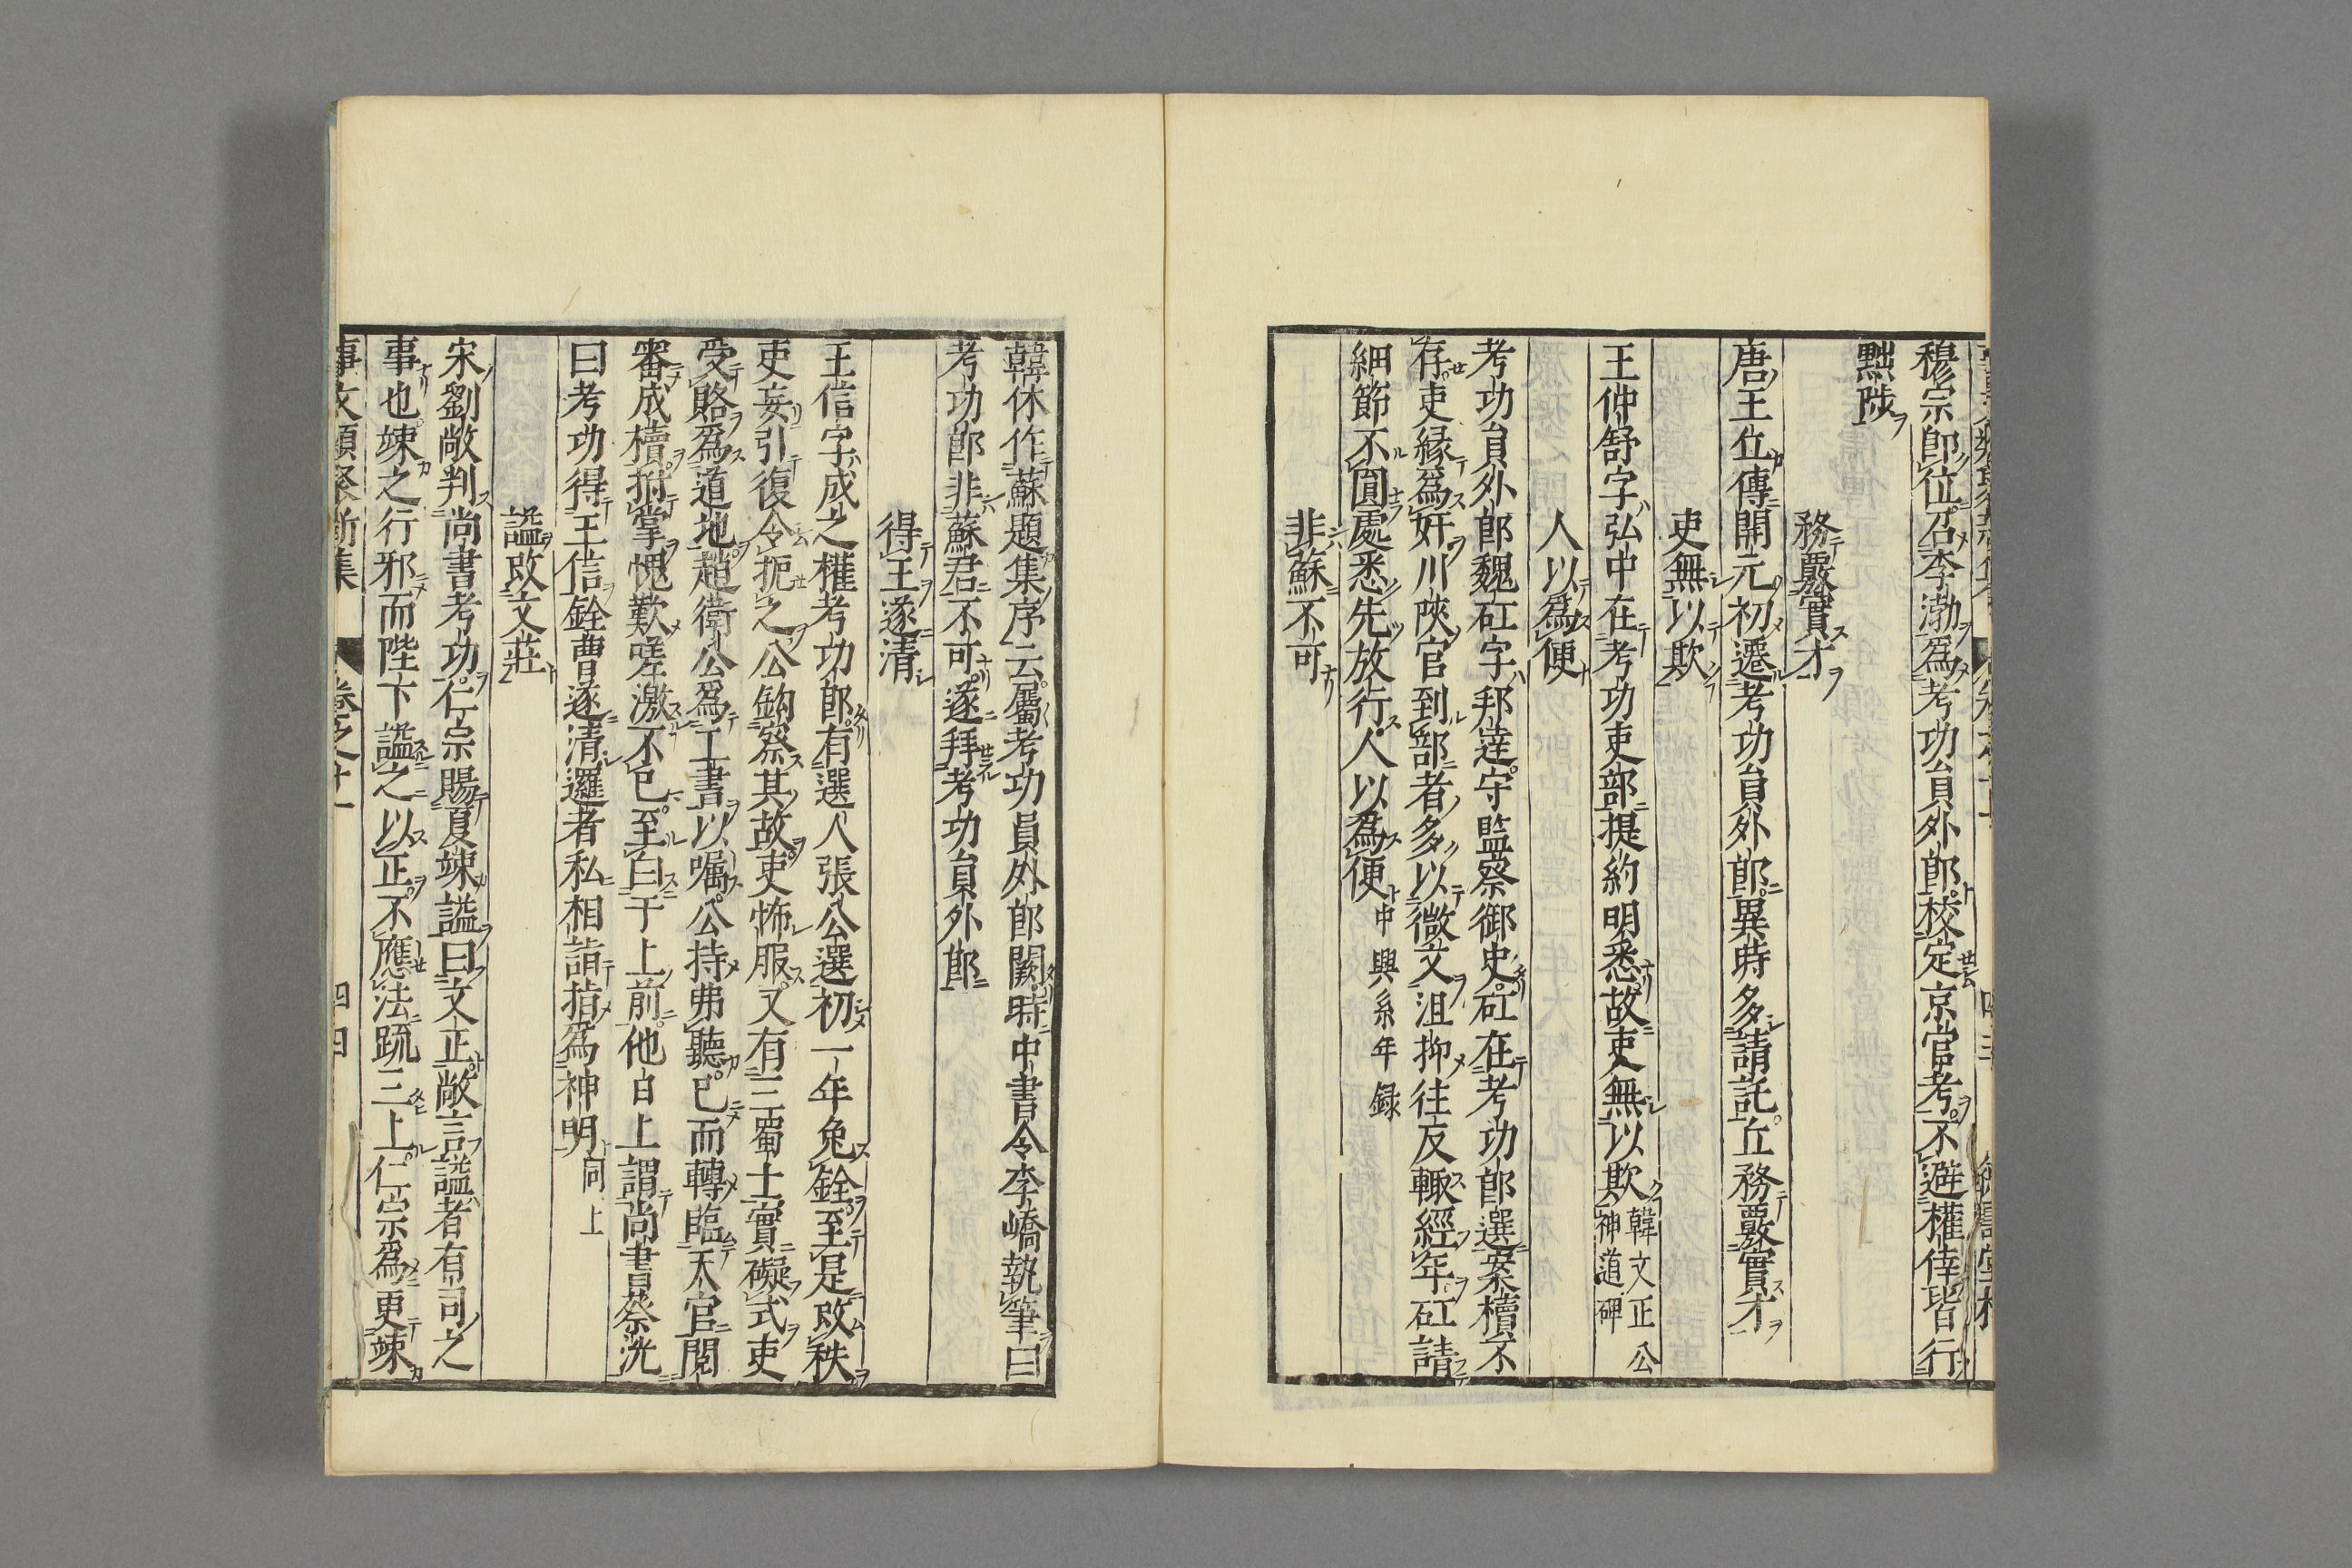 穆宗卽位召李渤爲考功員外郎校定京官考不避權倖皆行
黜陟
務覈實才
唐王丘傳開元初遷考功員外郎異時多請託丘務覈實才
吏無以欺
王仲舒字弘中在考功吏部提約明悉故吏無以欺韓文正公神道碑
人以爲便
考功員外郎魏矼字邦達守監察御史矼在考功郎選案牘不
存吏縁爲奸川陝官到部者多以微文沮抑往反輒經年矼請
細節不圓處悉先放行人以爲便中興系年録
非蘇不可
韓休作蘇題集序云屬考功員外郎闕時中書令李嶠執筆曰
考功郎非蘇君不可遂拜考功員外郎
得王遂清
王信字成之權考功郎有選人張公選初一年免銓至是改秩
吏妄引復令扼之公鈎察其故吏怖服又有三蜀士實礙式吏
受賂爲道地趙衛公爲工書以嘱公持弗聽已而轉臨天官閲
審成牘撫掌愧歎嗟激不已至白于上前他日上謂尚書蔡洸
曰考功得王信銓曹遂清邏者私相詣指爲神明同上
謚改文莊
宋劉敞判尚書考功仁宗賜夏竦謚曰文正敞言謚者有司之
事也竦之行邪而陛下謚之以正不應法疏三上仁宗爲更竦
事文類聚新集 卷之廿一 四四